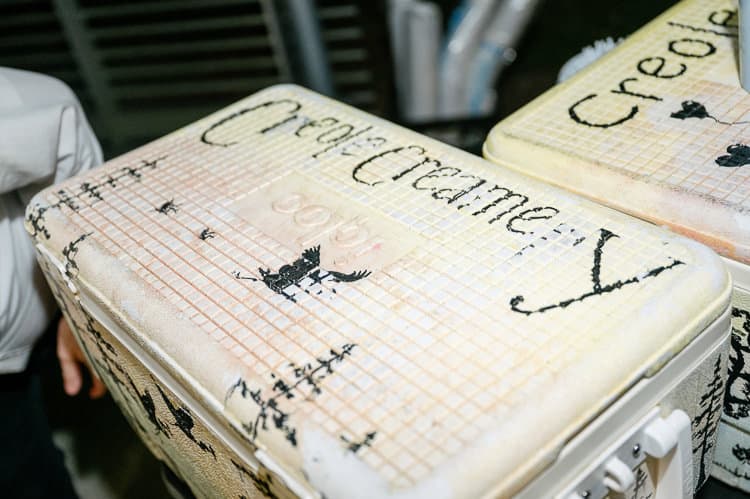 Creole Creamery
Igloo
Creole